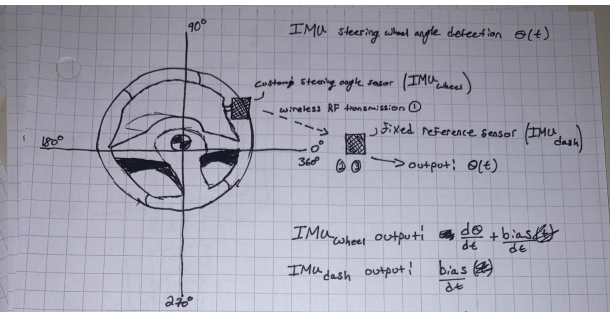 90°
IMU steering wheel angle detection θ(t)
custom steering angle sensor (IMU wheel)
wireless RF transmission ①
fixed reference sensor (IMU dash)
180°
0°
360°
② ③
→ output: θ(t)
IMU wheel output: dθ/dt + bias/dt
IMU dash output: bias/dt
270°